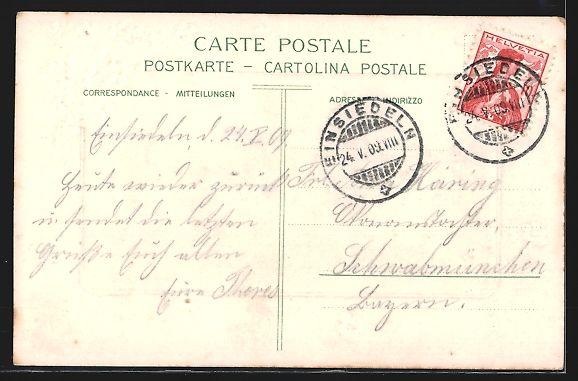 CARTE POSTALE
POSTKARTE – CARTOLINA POSTALE
CORRESPONDANCE - MITTEILUNGEN
ADRESSE INDIRIZZO
HELVETIA
EINSIEDELN
24.V.09.VIII
EINSIEDELN
24.V.09.VIII
Einsiedeln d. 24.V.09.
Heute wieder zurück
u sendet die letzten
Grüße Euch allen
Eure
Häring
Ökonomstochter,
Schwabmünchen
Bayern.